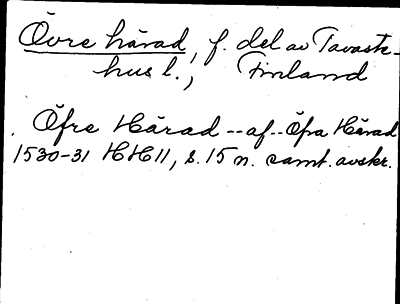 Övre härad, f. del av Tavaste-
hus l., Finland
Öfre Härad -- af -- Öfra Härad
1530-31 HH II, s. 15 n. samt. avskr.